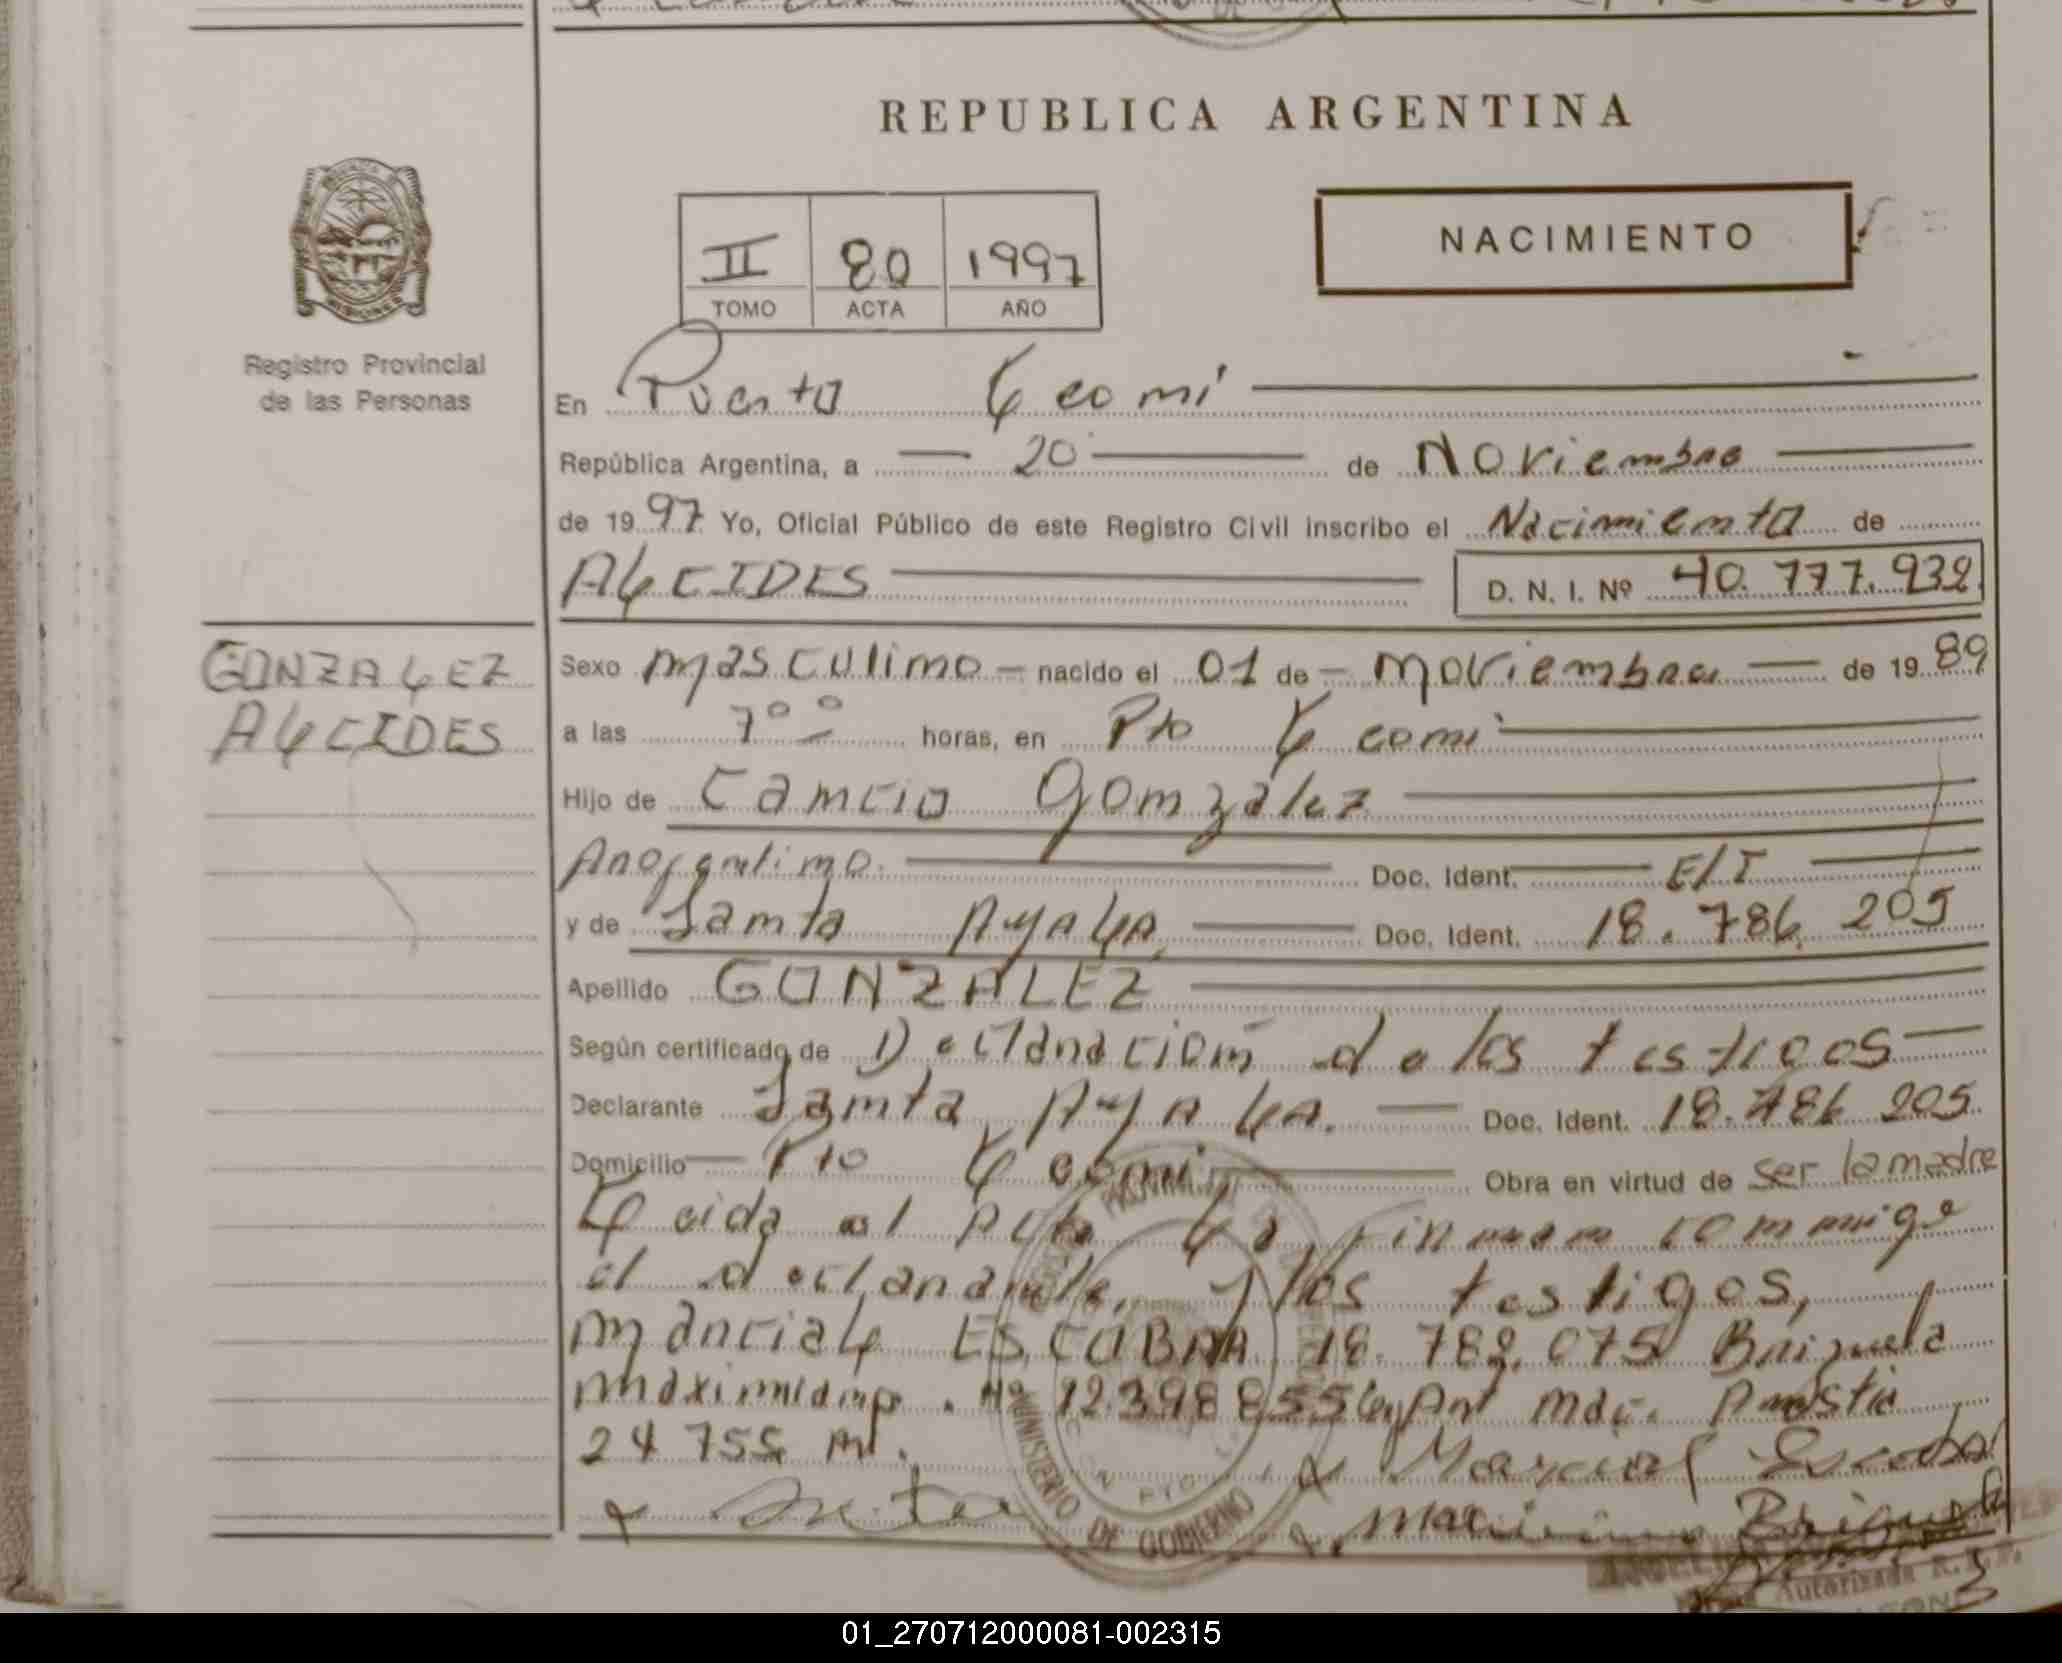 REPUBLICA ARGENTINA
II 80 1997
TOMO ACTA AÑO
NACIMIENTO
Registro Provincial
de las Personas
En Puerto Leoni
República Argentina, a 20 de Noviembre
de 1997 Yo, Oficial Público de este Registro Civil inscribo el Nacimiento de
ALCIDES D. N. I. Nº 40.777.932
GONZALEZ
ALCIDES
Sexo masculino nacido el 01 de noviembre de 1989
a las 7 horas, en Pto Leoni
Hijo de Cancio Gonzalez
Argentino. Doc. Ident. E/T
y de Santa AYALA, Doc. Ident. 18.786.205
Apellido GONZALEZ
Según certificado de Declaracion de los testigos
Declarante Santa AYALA. Doc. Ident. 18.786 205
Domicilio Pto Leoni Obra en virtud de ser la madre
Leida el Acta La firman conmigo
el declarante, y los testigos,
MARCIAL ESCOBAR 18. 782.075 Brizuela
maximiano. Nº 12.398855
24 755
Marcial Escobar
MINISTERIO DE GOBIERNO
01_270712000081-002315